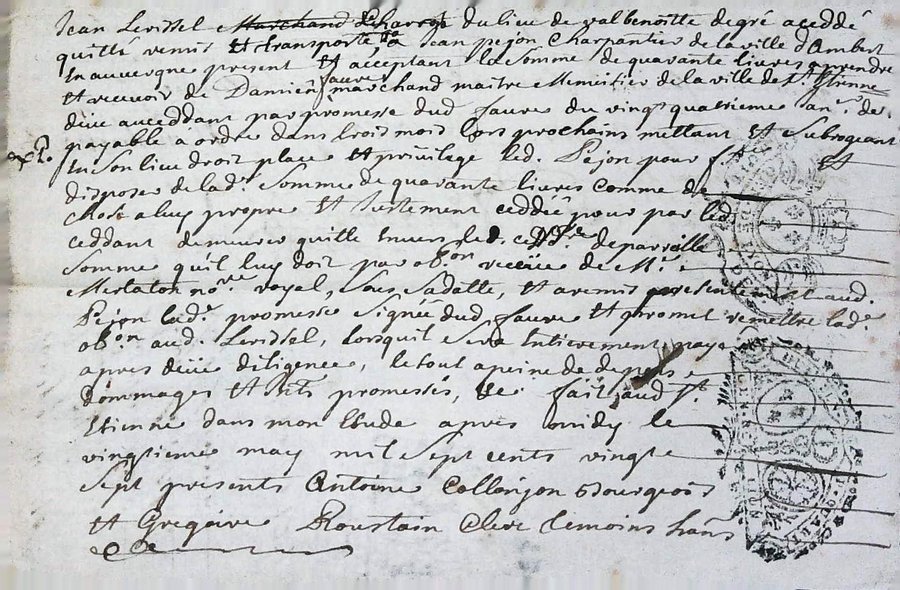 Jean Levissel Marchand du lieu de valbenoitte de gré a ceddé
quitté remis Et transporté a Jean pejon Charpantier de la ville d'Ambert
En auvergne present Et acceptant la Somme de quarante livres a prendre
Et recevoir de Damien faures marchand maitre Menuitier de la ville de St Etienne
düe au ceddant par promesse dud faures du vingt quatrieme
payable à ordre dans trois mois lors prochains mettant Et Subrogeant
En Son lieu droit place Et privilege led. Pejon pour Et
disposer de lad. Somme de quarante livres comme de
chose a luy propre Et justement ceddée pour par led.
ceddant demeurer quitte Envers led. de pareille
Somme qu'il luy doit par obon receüe de Me
nore royal, Sous Sa datte, Et a remis presentement aud.
Pejon lad. promesse Signée dud faures Et promet remettre lad.
obon aud. Levissel, lorsquil Sera Entierement payé
apres düe diligence, le tout a peine de depens
dommages Et Ints promesses, &c fait aud St
Etienne dans mon Etude apres midy le
vingtieme may mil Sept cents vingt
Sept presents Antoine Collonjon Bourgeois
Et Gregoire Roustain Clerc temoins